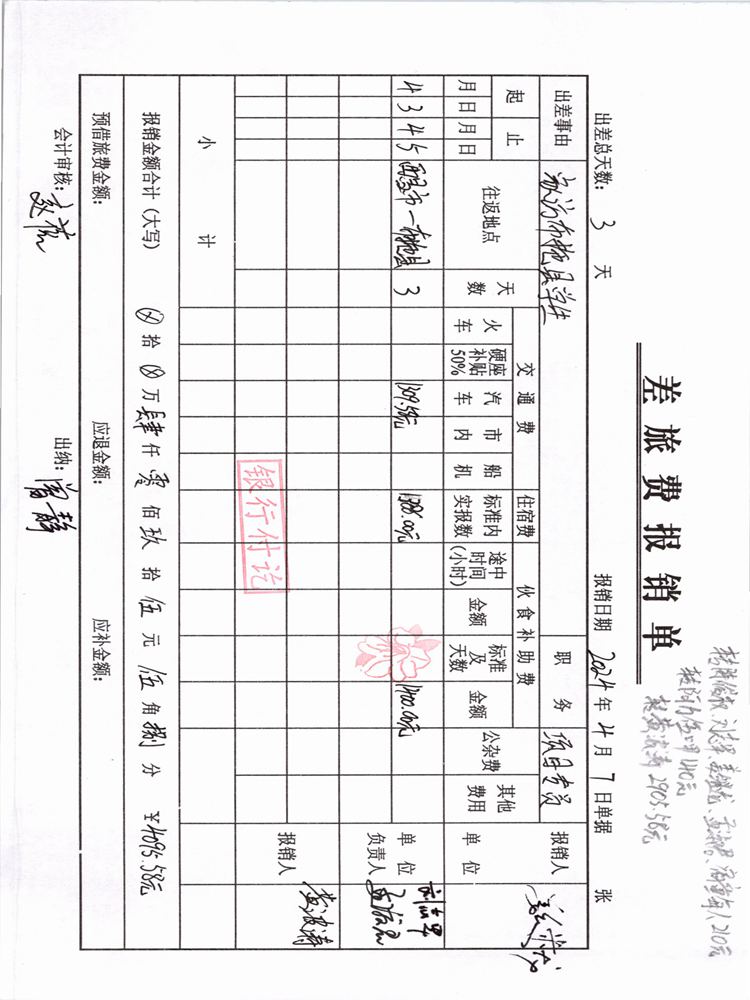 差旅费报销单
出差总天数: 3 天 报销日期 2024 年 4 月 7 日单据 张
出差事由 家访布拖县学生 职务 项目专员 报销人
起 止 往返地点 天数 交通费 住宿费 伙食补助费 公杂费 其他费用 单位
月 日 月 日 火车 硬座补贴50% 汽车 市内 船机 标准内实报数 途中时间(小时) 金额 标准及天数 金额
4 3 4 5 西昌市—布拖县 3 1309.58元 1386.00元 1400.00元 单位负责人
报销人
银行付讫
小计
报销金额合计(大写) ⊗ 拾 ⊗ 万 肆 仟 零 佰 玖 拾 伍 元 伍 角 捌 分 ¥4095.58元
预借旅费金额: 应退金额: 应补金额:
会计审核: 出纳: 曾静
140元
2905.58元
210元